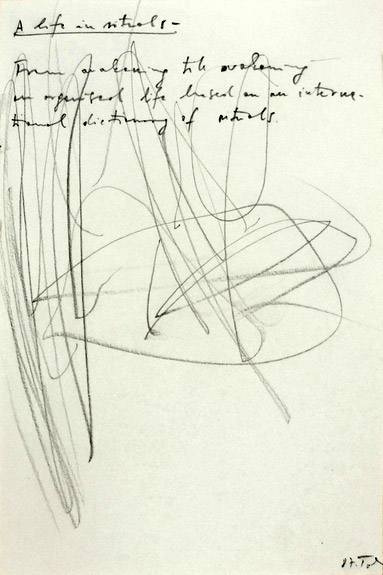 A life in rituals –
From awakening till awakening
an organised life based on an interna-
tional dictionary of rituals.